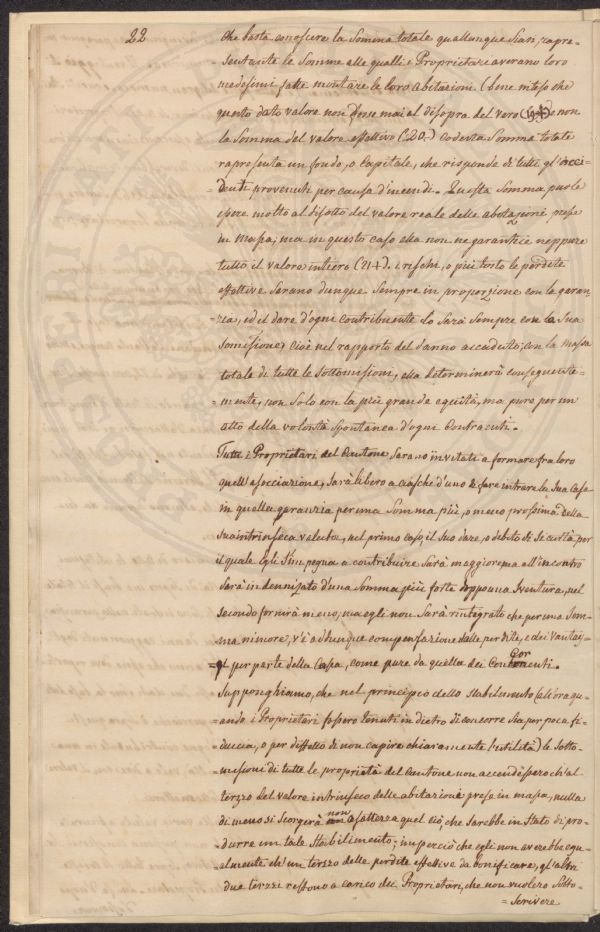 22
che basta conoscere la Somma totale quallunque Siasi, rapre-
-sentante le Somme alle qualli i Proprietari averano loro
medesimi fatte montare le loro abitazioni (bene inteso che
questo dato valore non fosse mai al disopra del vero (19) e non
la Somma del valore effettivo (20.) Codesta Somma totale
rapresenta un fondo, o Capitale, che risponde di tutti gl'acci-
-denti provenuti per causa d'incendi. Questa Somma puole
essere molto al disotto del valore reale delle abitazioni prese
in Massa; ma in questo caso ella non ne garantice neppure
tutto il valore intiero (214). i rischi, o più tosto le perdite
effettive Sarano dunque Sempre in proporzione con la garan-
-zia, ed il dare d'ogni contribuente lo Sarà Sempre con la Sua
Somissione, cioè nel rapporto del danno accaduto; con la massa
totale di tutte le Sottomissioni, ella determinerà conseguente-
-mente, non Solo con la più grande equità, ma pure per un
atto della volontà Spontanea d'ogni Contraenti.
Tutti i Proprietari del Cantone Sarano invitati a formare fra loro
quest'associazione, Sarà libero a ciascheduno di fare intrare la Sua Casa
in quella garanzia per una Somma più, o meno prossima della
Sua intrinseca valuta, nel primo caso, il Suo dare, o debito di Securtà per
il quale Egli S'impegna a contribuire Sarà maggiore, ma all'incontro
Sarà indennizato d'una Somma più forte doppo una Sventura, nel
Secondo fornirà meno, ma egli non Sarà rintegrato che per una Som-
-ma minore, v'è addunque compensazione delle perdite, e dei vantag-
-gi per parte della Cassa, come pure da quella dei Concorrenti.
Supponghiamo, che nel principio dello Stabilimento (alora qu-
-ando i Proprietari fossero tenuti in dietro di concorre Sia per poca fi-
-ducia, o per diffetto di non capire chiaramente l'utilità) le Sotto-
-missioni di tutte le proprietà del Cantone non accendessero ch'al
terzo del valore intrinseco delle abitazioni prese in massa, nulla
di meno si Scorgerà non a Salterza quel ciò, che Sarebbe in Stato di pro-
-durre un tale Stabilimento; imperciò che egli non averebbe equ-
-almente ch'un terzo delle perdite effettive da bonificare, gl'altri
due terzi restono a carico dei Proprietari, che non vuolero Sotto-
=Scrivere